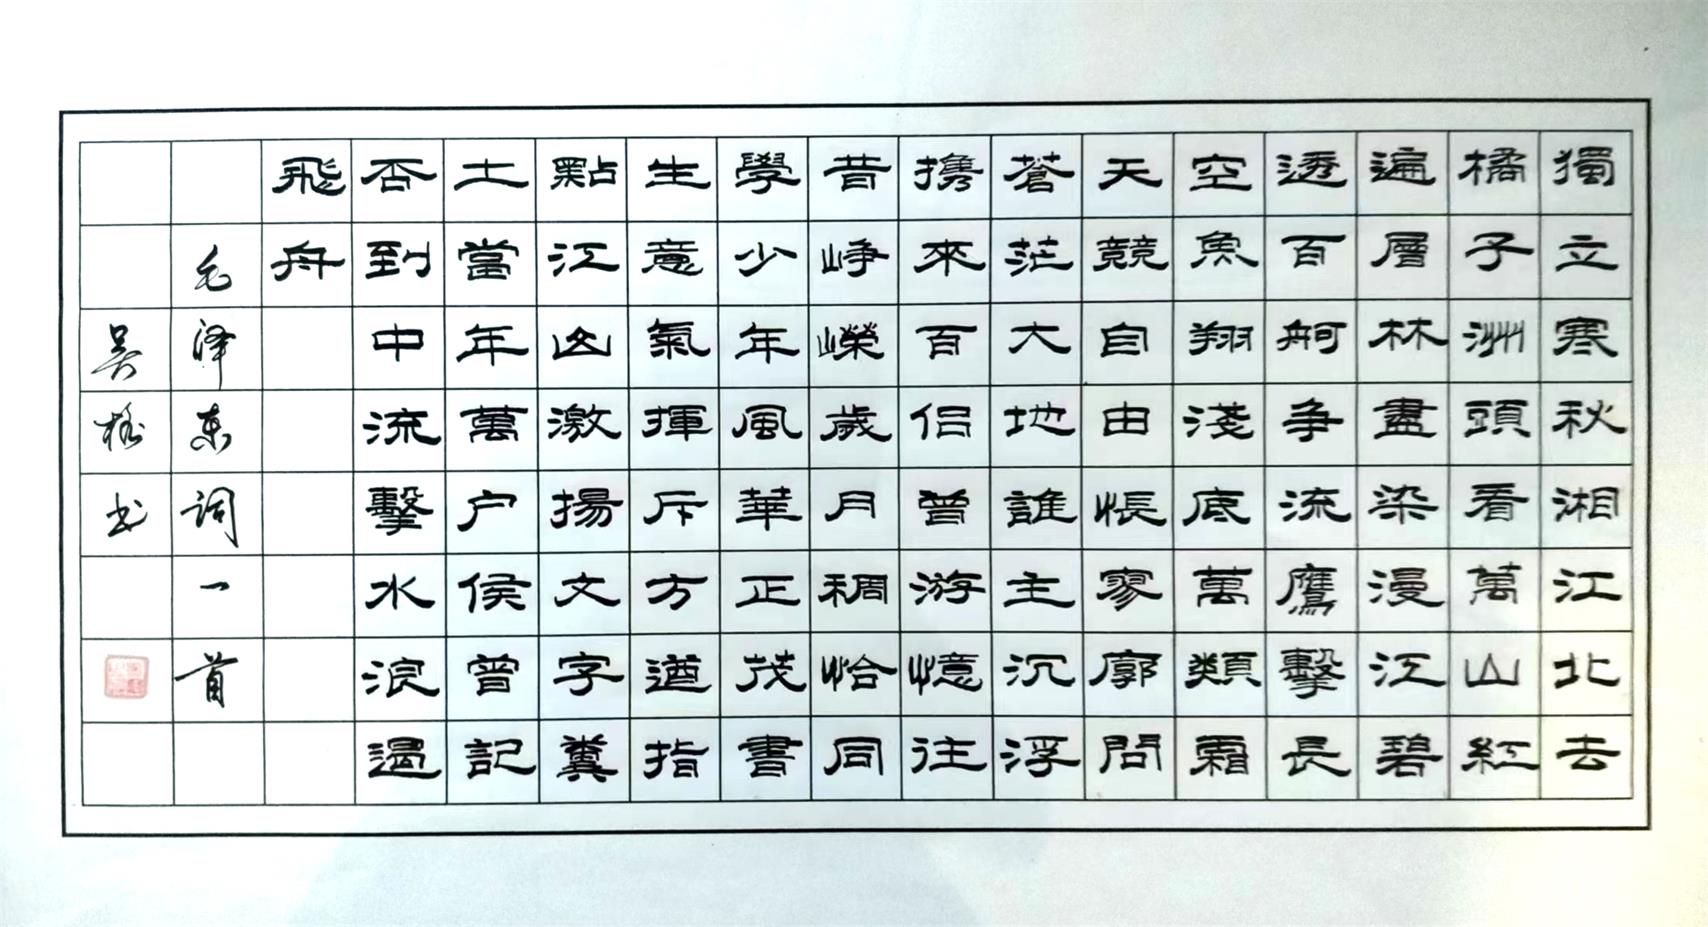 獨立寒秋湘江北去
橘子洲頭看萬山紅
遍層林盡染漫江碧
透百舸争流鷹擊長
空魚翔淺底萬類霜
天競自由悵寥廓問
蒼茫大地誰主沉浮
攜來百侣曾游憶往
昔崢嶸歲月稠恰同
學少年風華正茂書
生意氣揮斥方遒指
點江山激揚文字糞
土當年萬户侯曾記
否到中流擊水浪遏
飛舟
毛泽东词一首
吴书